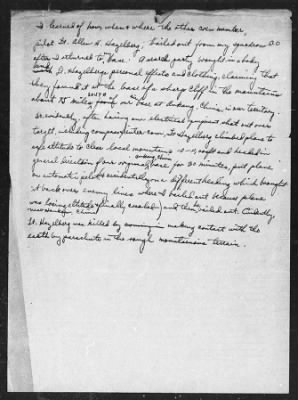 I learned of how, when & where the other crew member,
pilot Lt. Allen H. Hazelberg, bailed out from my squadron C.O.
after I returned to base. A search party brought in a body
with Lt. Hazelbergs personal effects and clothing, claiming that
they found it at the base of a sharp cliff in the mountains
about 75 miles south from our base at Ankang, China in our territory.
Evidently, after having our electrical equipment shot out over
target, including compass, inter com, Lt. Hazelberg climbed plane to
safe altitude to clear local mountains and headed in
general direction of our original base for 30 minutes, put plane
on automatic pilot accidentally on a different heading which brought
it back over enemy lines where I bailed out because plane
was losing altitude (finally crashed) and then bailed out. Evidently
near China
Lt. Hazelberg was killed by coming in making contact with the
earth by parachute in the rough mountainous terrain.